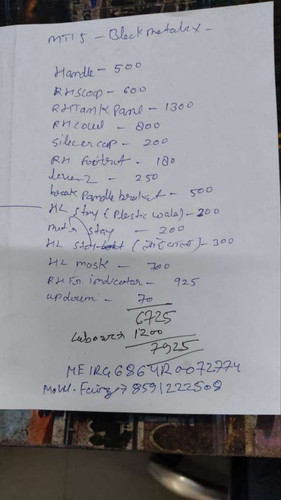 MT15 - Black metalix -
Handle - 500
RH scop - 600
RH Tank Panel - 1300
RH cowl - 800
silencer cap - 200
RH footrest - 180
lever 2 - 250
break Paddle - 500
HL stay (Plastic wala) - 200
meter stay - 200
HL stay - 300
HL mask - 700
RH Fr indicator - 925
70
6725
Labour → 1200
7925
Mohd. Faiz → 8591222508